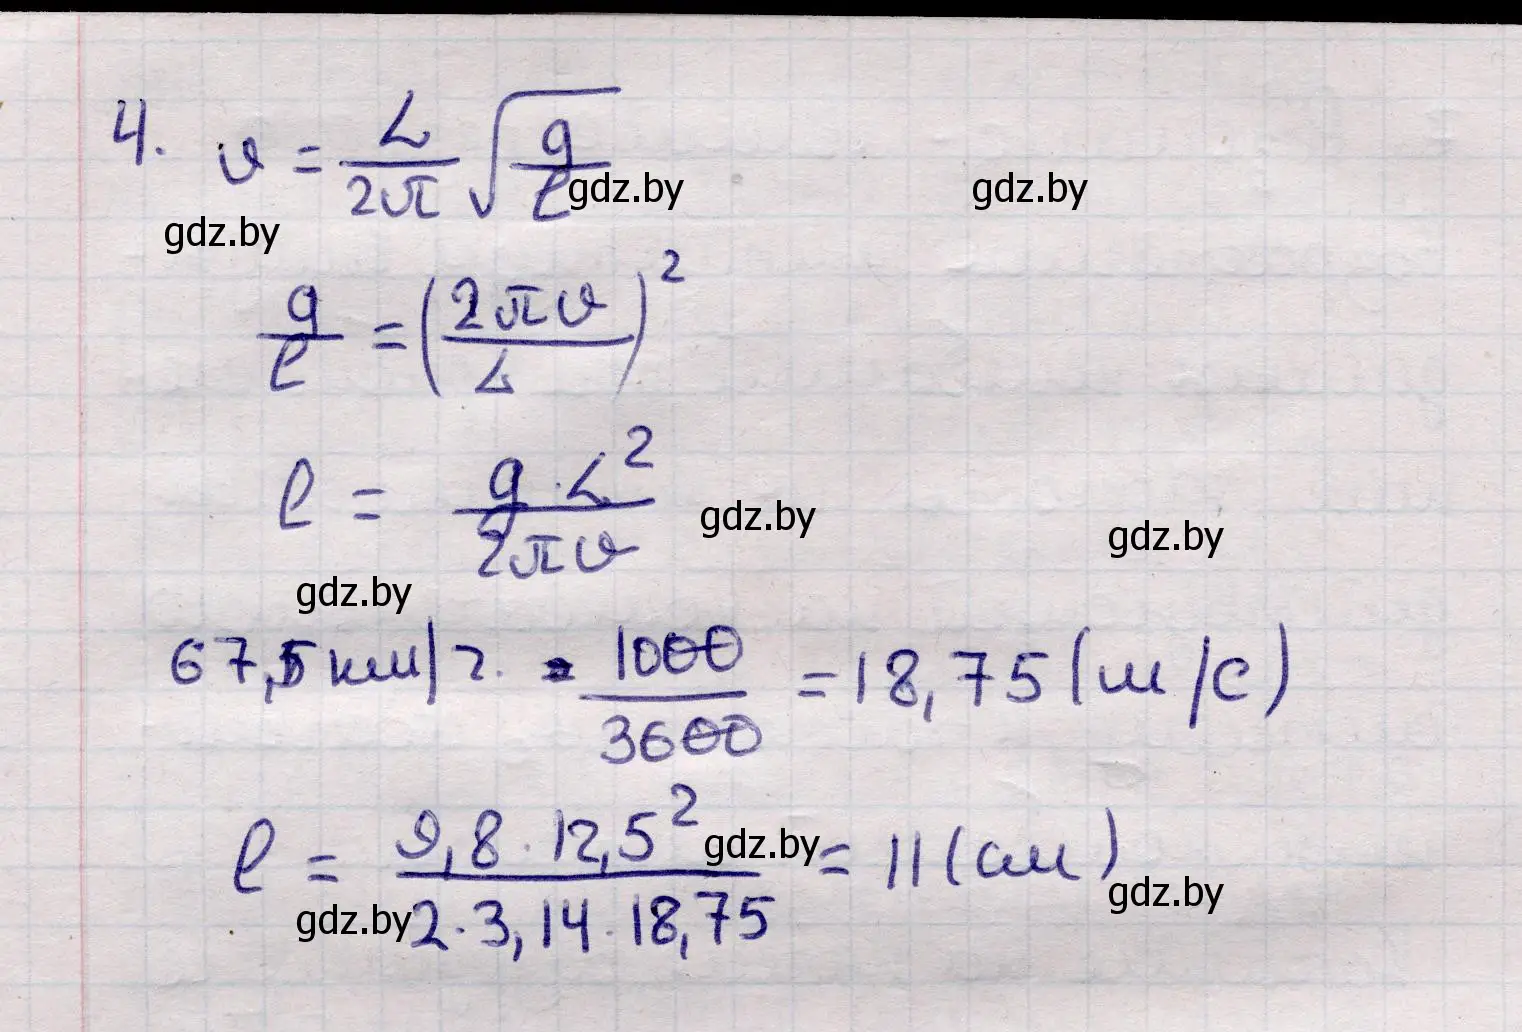 4. v = L / 2π √ g / l
gdz.by gdz.by gdz.by
g / l = ( 2πv / L )²
l = g · L² / 2πv
gdz.by gdz.by
gdz.by
67,5 км/ч. = 1000 / 3600 = 18,75 (м/с)
l = 9,8 · 12,5² / 2 · 3,14 · 18,75 = 11 (см)
gdz.by gdz.by
gdz.by